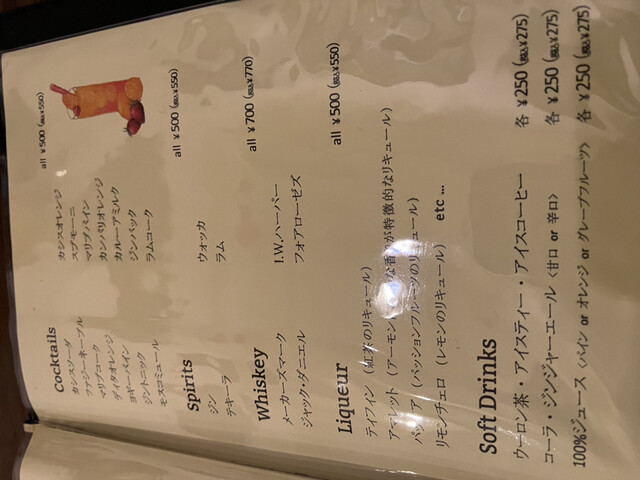 Cocktails all ¥500 (税込¥550)
カシスソーダ カシスオレンジ
ファジーネーブル スプモーニ
マリブコーク マリブパイン
ディタオレンジ カンパリオレンジ
ヨギーパイン カルーアミルク
ジントニック ジンバック
モスコミュール ラムコーク
Spirits all ¥500 (税込¥550)
ジン ウォッカ
テキーラ ラム
Whiskey all ¥700 (税込¥770)
メーカーズマーク I.W.ハーパー
ジャック・ダニエル フォアローゼズ
Liqueur all ¥500 (税込¥550)
ティフィン (紅茶のリキュール)
アーレット (アーモンド 香りが特徴的なリキュール)
(パッションフルーツのリキュール)
リモンチェロ (レモンのリキュール) etc ...
Soft Drinks
ウーロン茶・アイスティー・アイスコーヒー 各 ¥250 (税込¥275)
コーラ・ジンジャーエール <甘口 or 辛口> 各 ¥250 (税込¥275)
100%ジュース <パイン or オレンジ or グレープフルーツ> 各 ¥250 (税込¥275)